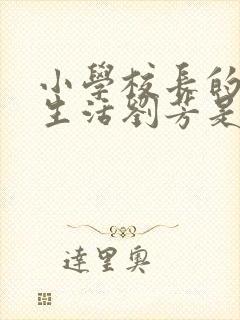 小學校長的
生活劉芳是
達里奧